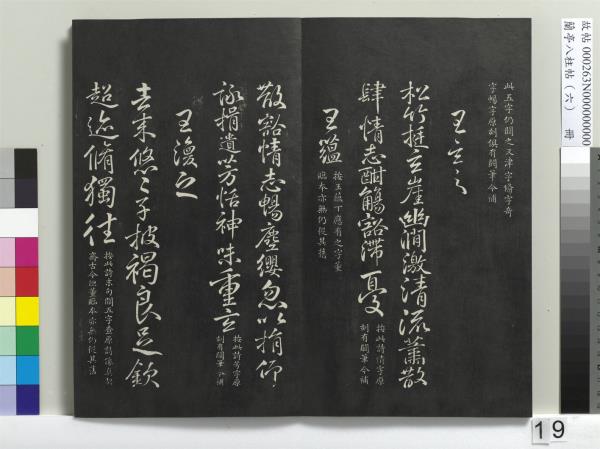 此五字仍闕之又津字條字奇
字暢字原刻俱有闕筆今補
王玄之
松竹挺岩崖幽澗激清流蕭散
肆情志酣觴豁滯憂
按此詩情字原
刻有闕筆今補
王蘊
按王蘊下應有之字董
臨本亦無仍從其舊
散豁情志暢塵纓忽以捐仰
詠挹遺芳怡神味重玄
按此詩芳字原
刻有闕筆今補
王渙之
去來悠悠子披褐良足欽
超迹脩獨往
按此詩末句闕五字
臨本亦無仍從其舊
故帖 000263N000000000
蘭亭八柱帖（六） 冊
19